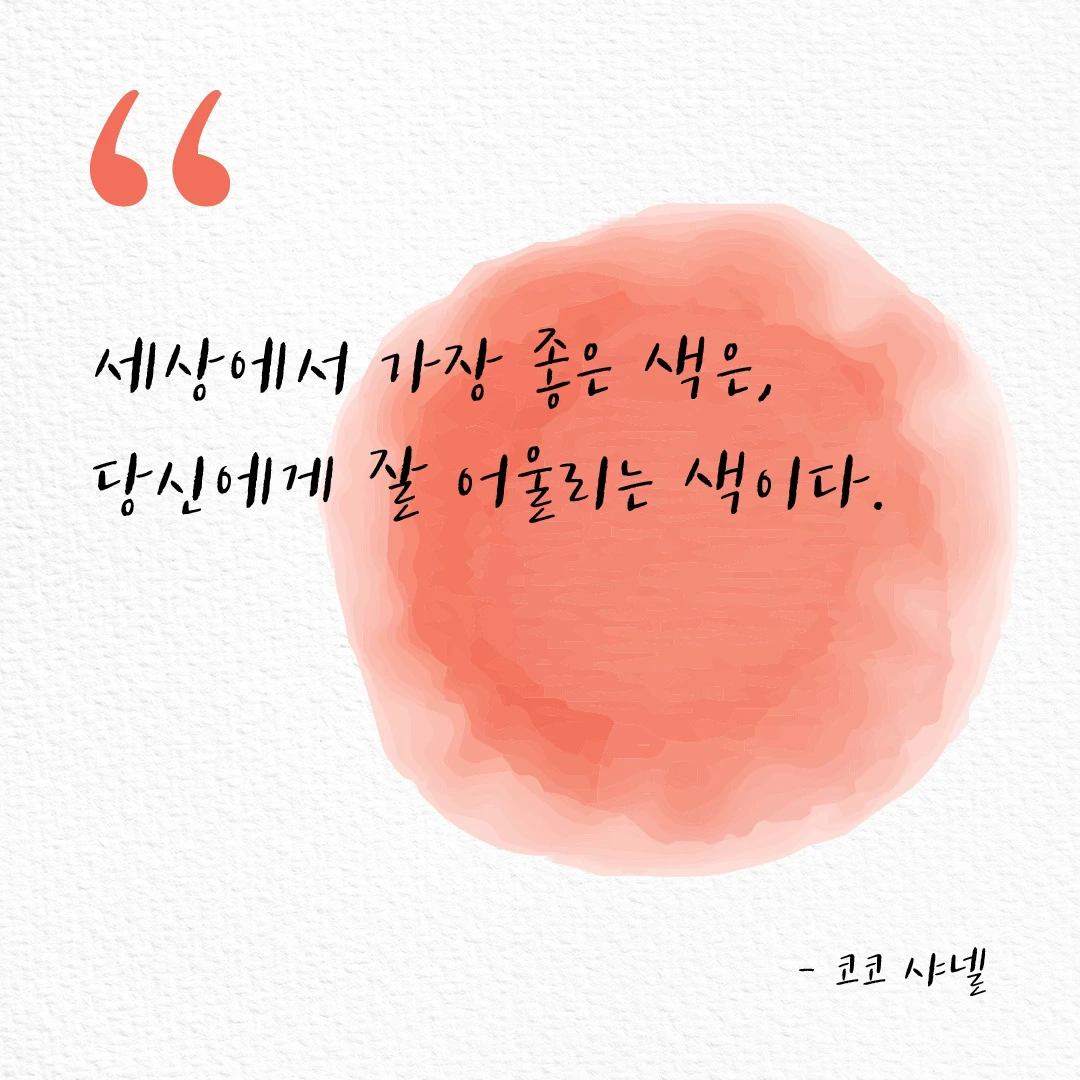 “
세상에서 가장 좋은 색은,
당신에게 잘 어울리는 색이다.
- 코코 샤넬